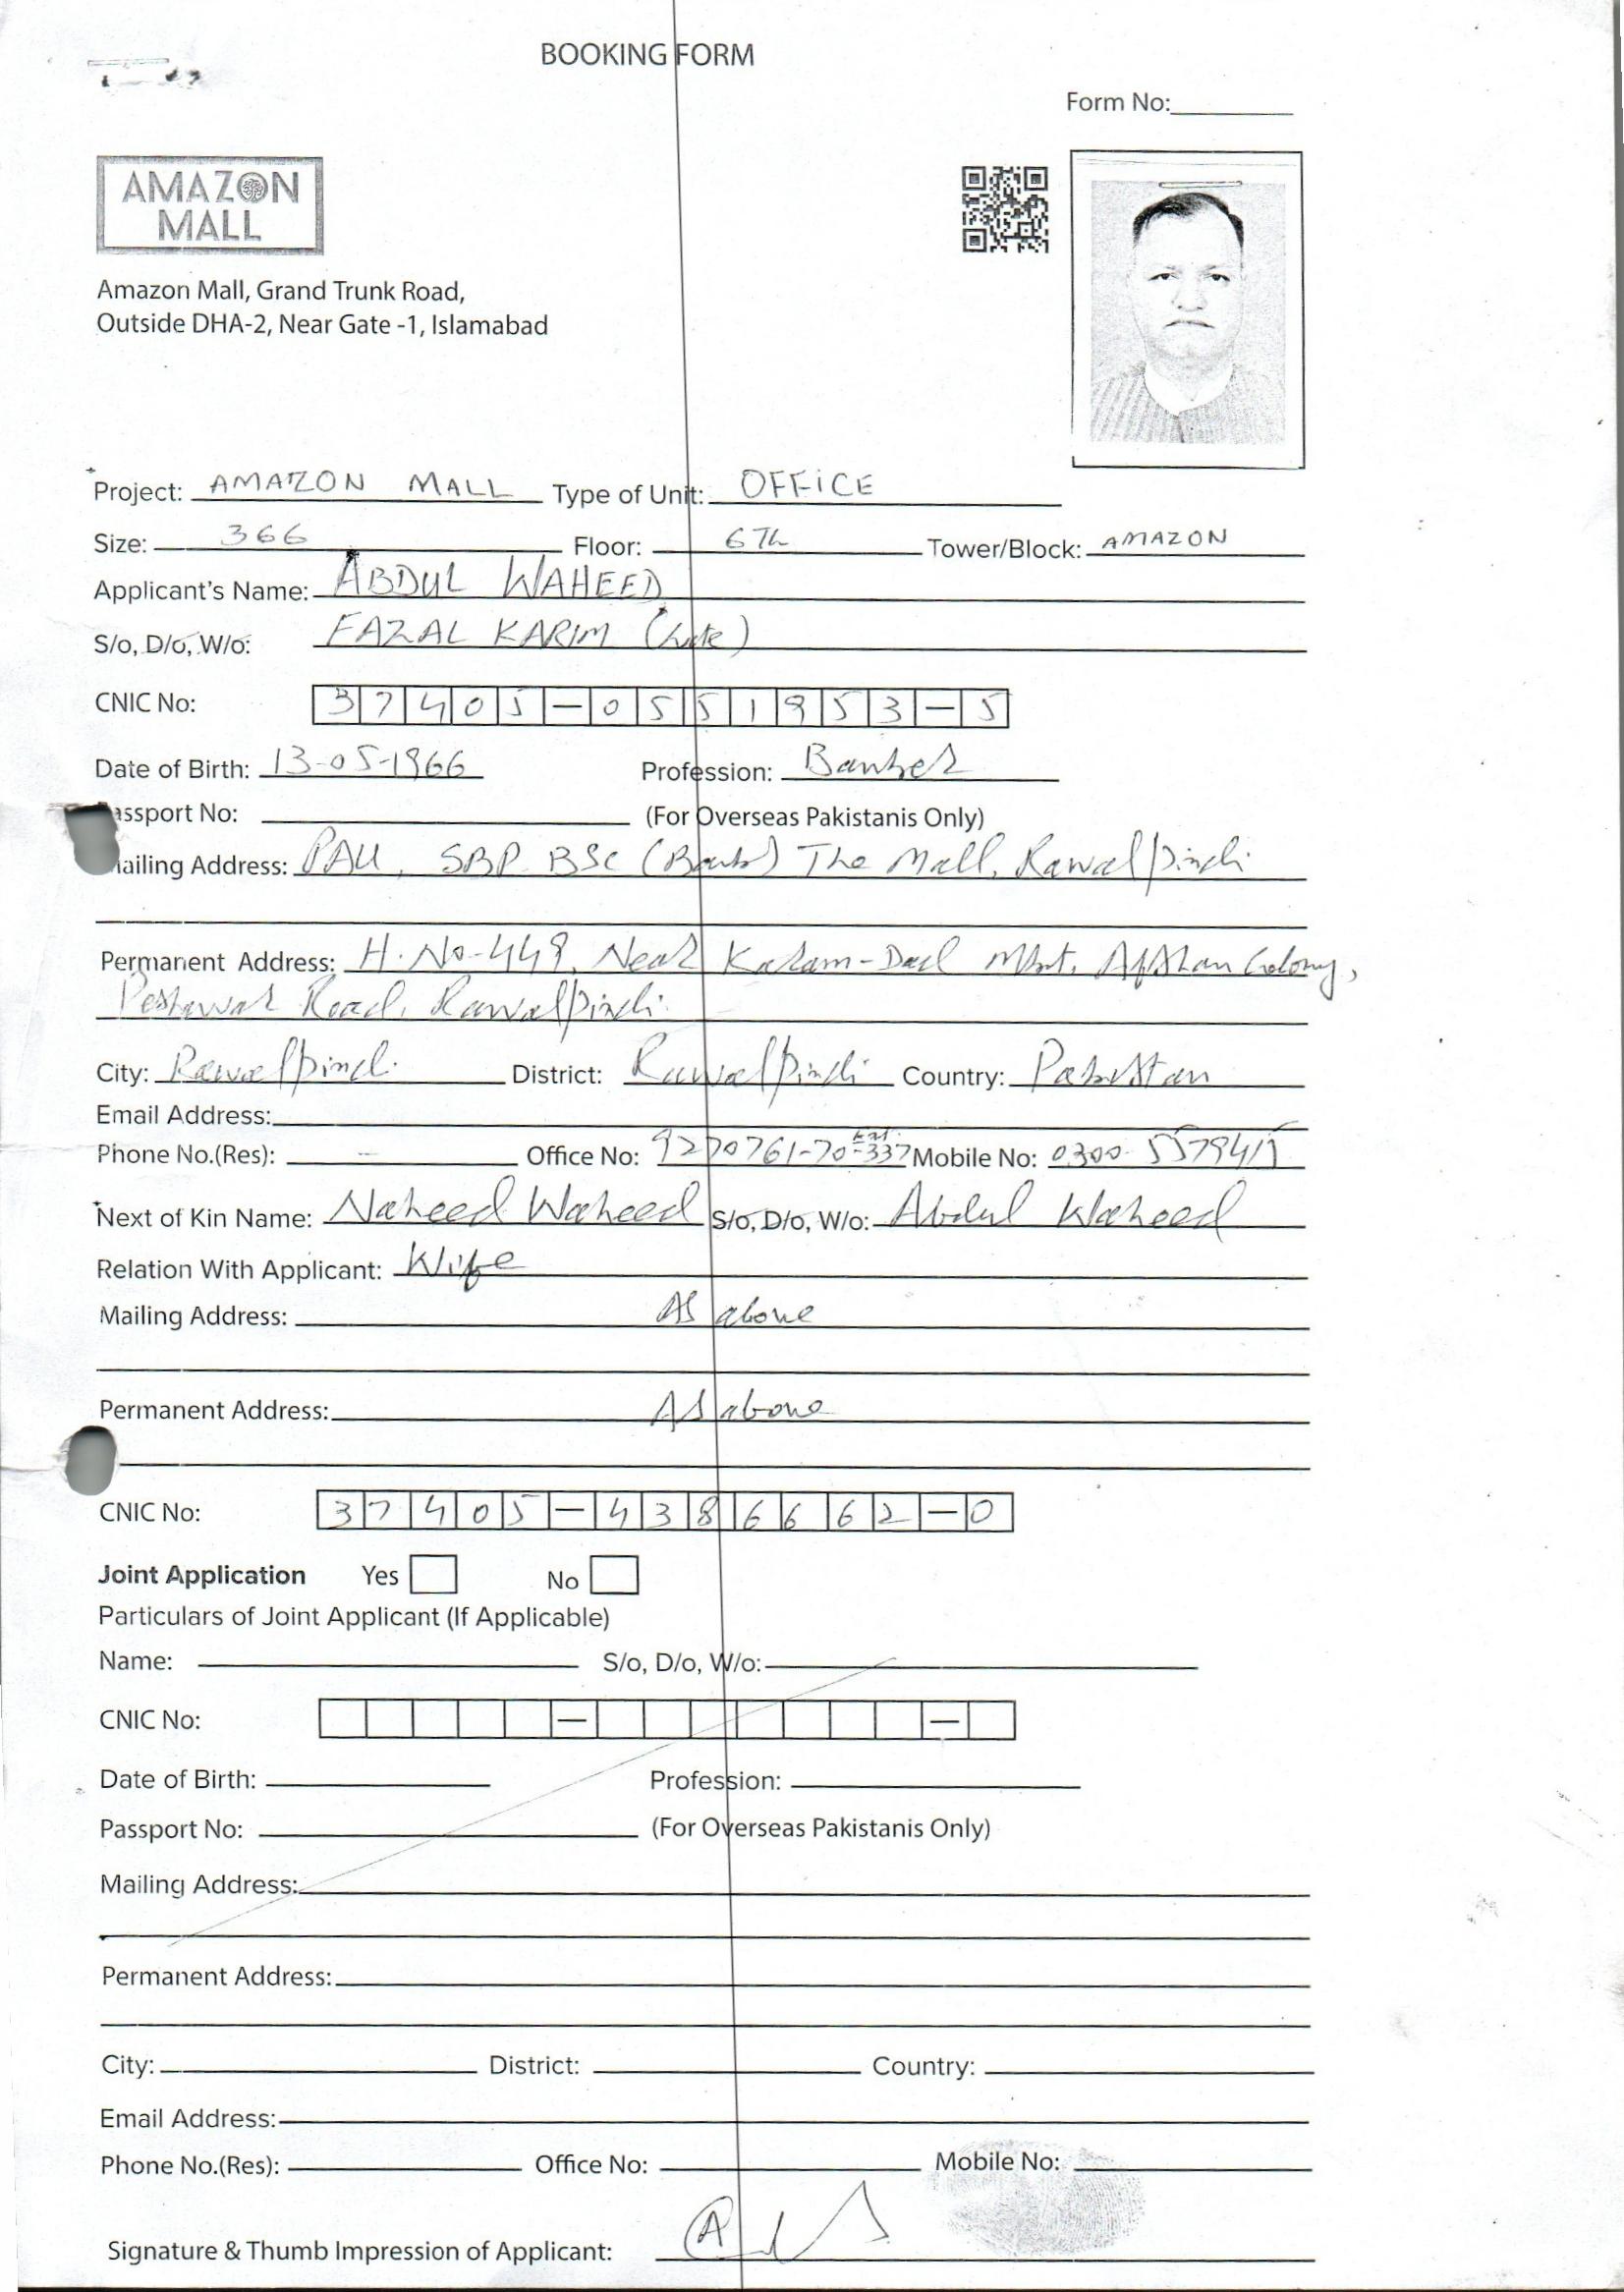 BOOKING FORM
Form No:
AMAZON
MALL
Amazon Mall, Grand Trunk Road,
Outside DHA-2, Near Gate -1, Islamabad
Project: AMAZON MALL Type of Unit: OFFICE
Size: 366 Floor: 6Th Tower/Block: AMAZON
Applicant's Name: ABDUL WAHEED
S/o, D/o, W/o: FAZAL KARIM (Late)
CNIC No: 37405-0551953-5
Date of Birth: 13-05-1966 Profession: Banker
Passport No: (For Overseas Pakistanis Only)
Mailing Address: PAU, SBP BSC (Bank) The Mall, Rawalpindi
Permanent Address: H.No-449, Near Karam-Dad Mkt, Afshan Colony,
Peshawar Road, Rawalpindi.
City: Rawalpindi District: Rawalpindi Country: Pakistan
Email Address:
Phone No.(Res): Office No: 9270761-70 Ext. -337 Mobile No: 0300
Next of Kin Name: Naheed Waheed S/o, D/o, W/o: Abdul Waheed
Relation With Applicant: Wife
Mailing Address: As above
Permanent Address: As above
CNIC No: 37405-4386662-0
Joint Application Yes No
Particulars of Joint Applicant (If Applicable)
Name: S/o, D/o, W/o:
CNIC No: — —
Date of Birth: Profession:
Passport No: (For Overseas Pakistanis Only)
Mailing Address:
Permanent Address:
City: District: Country:
Email Address:
Phone No.(Res): Office No: Mobile No:
Signature & Thumb Impression of Applicant: